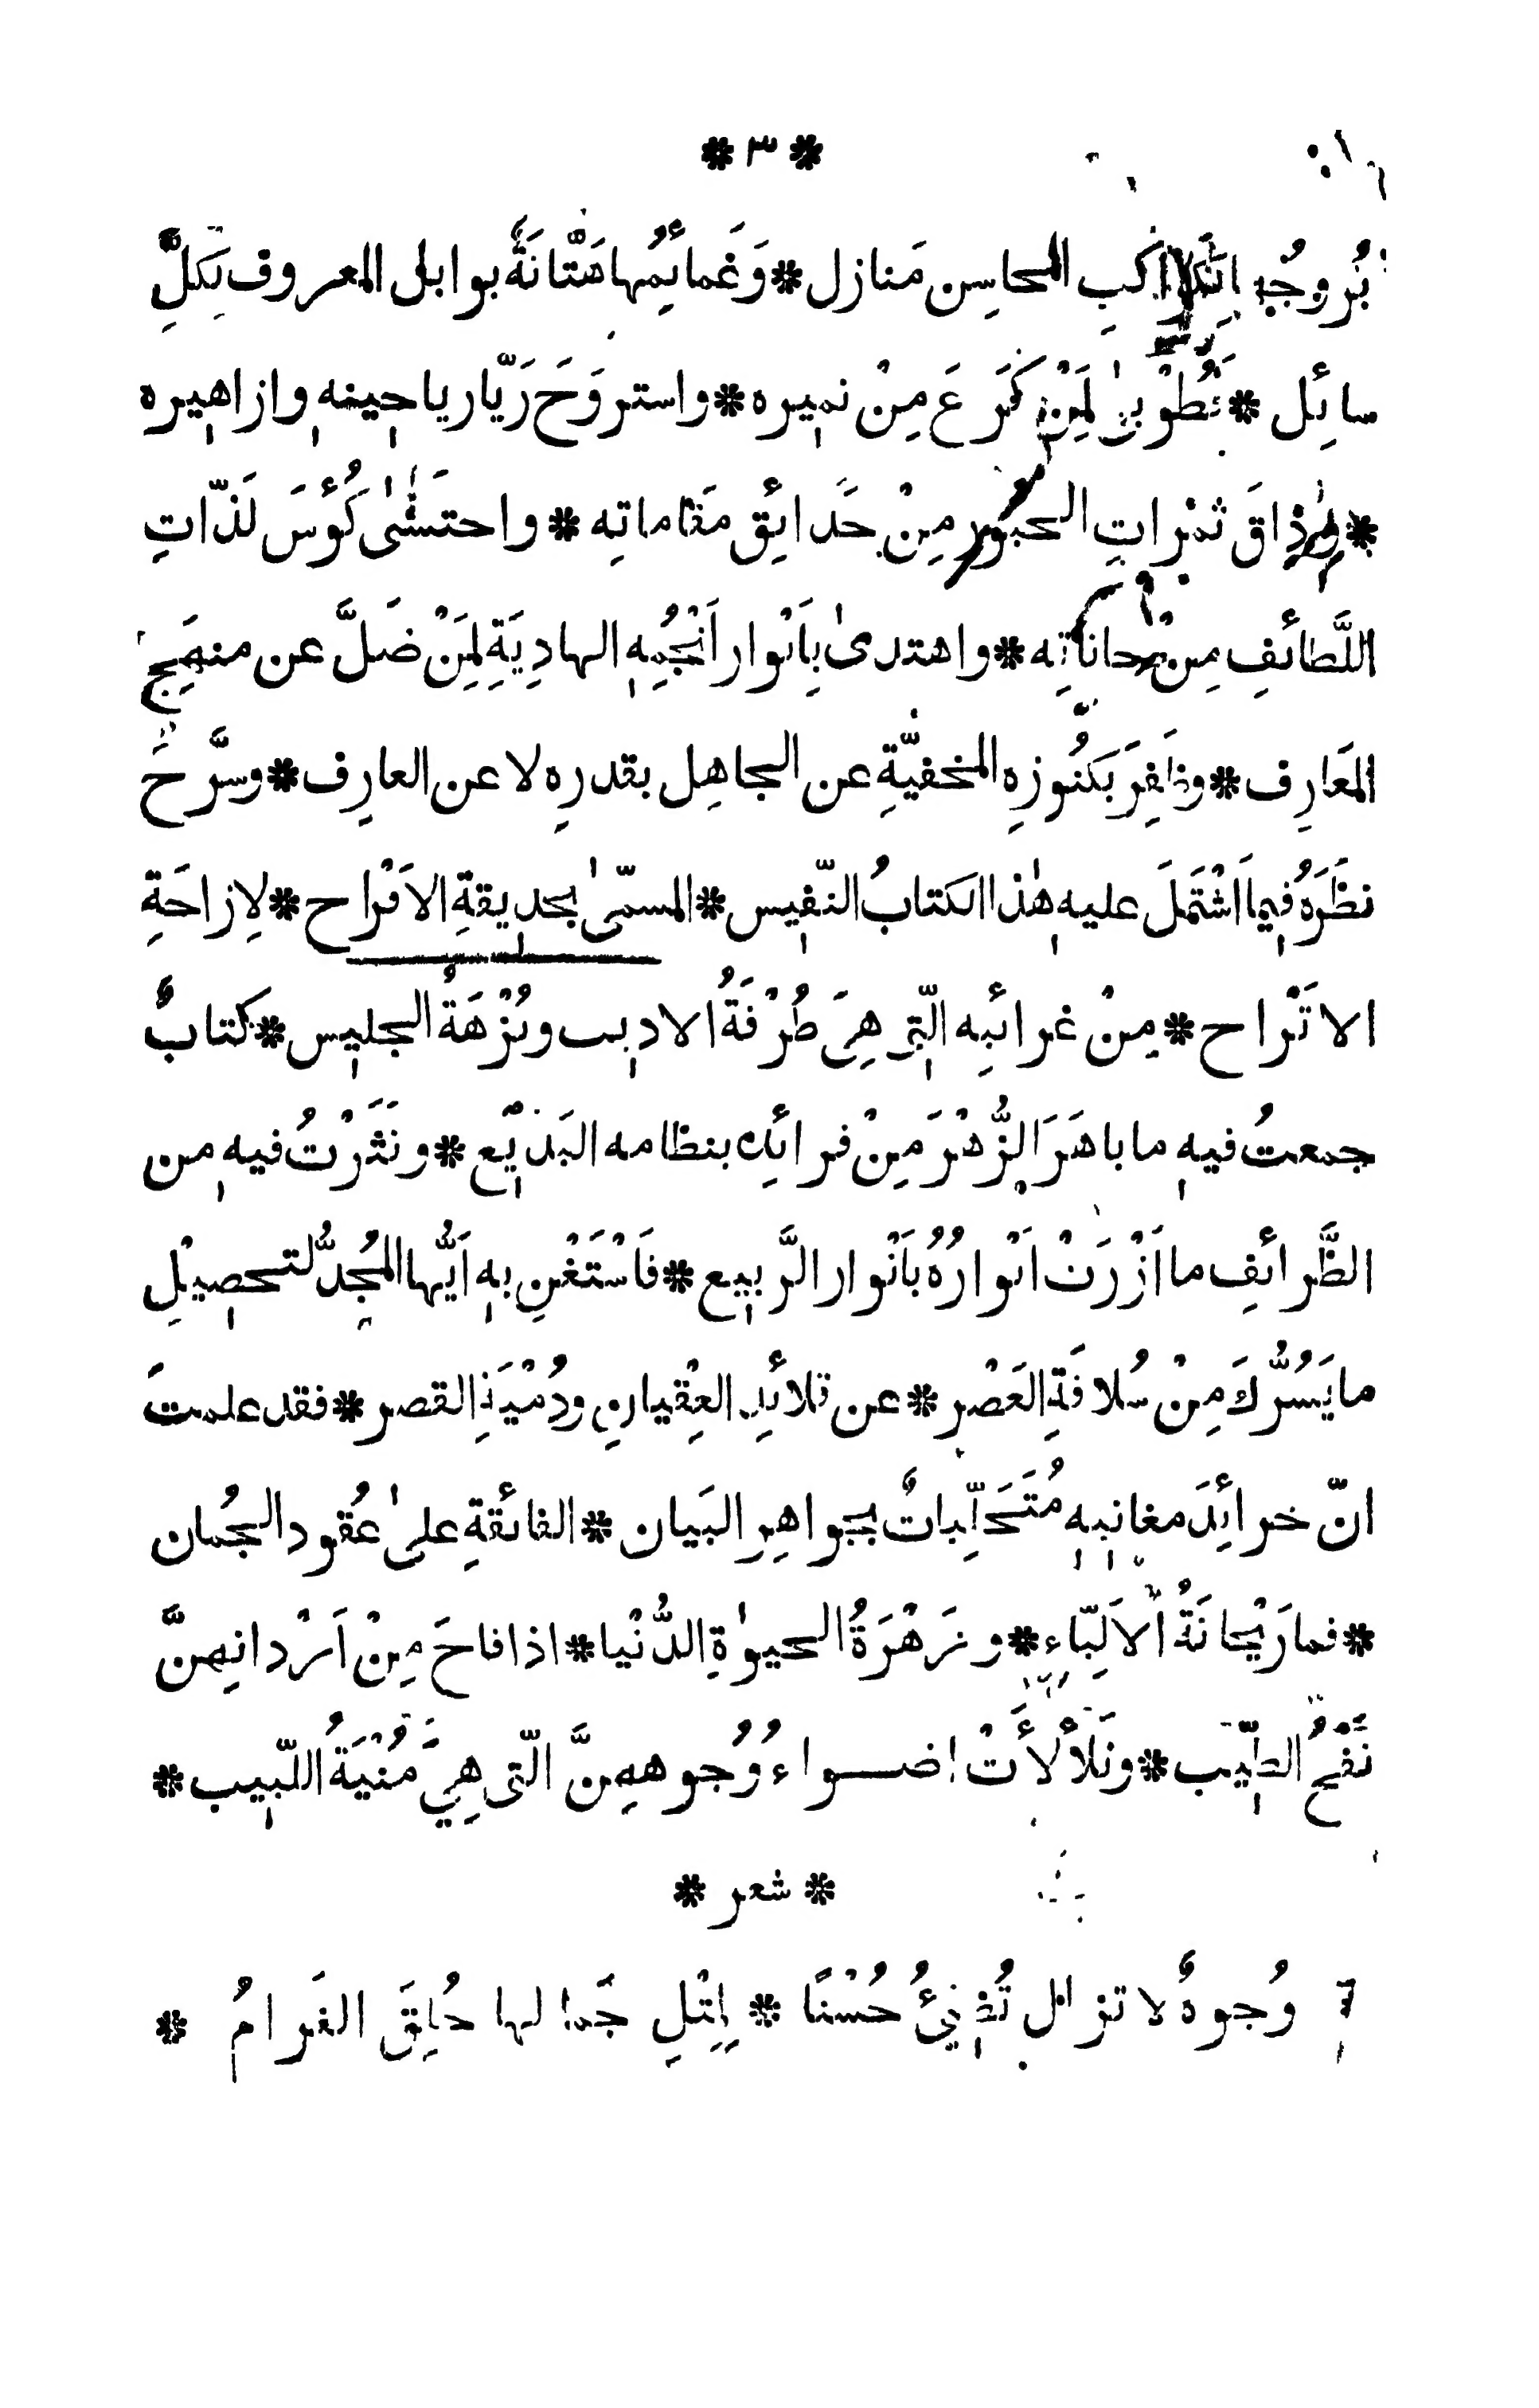 * ٣ *
بُروجُه لِكواكبِ المحاسِن مَنازل * وَغَمائمُها هَتّانَةٌ بوابل المعروف لِكلِّ
سائِل * فطُوْبىٰ لِمَنْ كَرَعَ مِنْ نميره * واستروَحَ رَيّا رياحينه وازاهيره
* وذاقَ ثمَرات الحبور مِنْ حَدائِق مَقاماتِه * واحتسٰى كُؤسَ لَذّاتِ
اللَّطائفِ مِنْ حاناتِه * واهتدىٰ بِاَنْوار اَنْجُمِه الهادِيَةِ لِمَنْ ضَلَّ عن منهَج
المَعَارِف * وظَفِرَ بكنُوزِه المخفيّةِ عن الجاهِل بقدرِه لا عن العارِف * وسرَّحَ
نظَرَهُ فِيما اَشْتَمَلَ عليه هٰذا الكتابُ النّفِيس * المسمّىٰ بحديقةِ الاَفْراح * لِازاحَةِ
الاتْراح * مِنْ غرائبِه الّتي هِيَ طُرْفَةُ الاديب ونُزْهَةُ الجليس * كتابٌ
جمعتُ فيه ما باهَرَ الزُّهْرَ مِنْ فرائِد بنظامه البَديع * ونَثَرْتُ فيه من
الظَّرائفِ ما اَزْرَتْ اَنْوارُهُ بَاَنْوار الرَّبيع * فَاسْتَغْنِ به اَيُّها المُجِدُّ لتحصيْلِ
ما يَسُرُّكَ مِنْ سُلافَةِ العَصْر * عن قلائِدِ العِقْيانِ ودُمْيَةِ القصر * فقد علمتَ
انّ خرائِدَ مغانيه مُتَحَلِّياتٌ بجواهِر البَيان * الفائقةِ علىٰ عُقود الجُمان
* فما رَيْحانَةُ الاَلِبّاءِ * وزَهْرَةُ الحيوٰةِ الدُّنْيا * اذا فاحَ مِنْ اَرْدانِهِنَّ
نَفْحُ الطِّيب * وتَلَأْلَأَتْ اضواءُ وُجوهِهِنَّ الّتي هِيَ مُنْيَةُ اللّبيب *
* شعر *
وُجوهٌ لا تزال تُضِيْئُ حُسْنًا * لِمِثْلِ جَمالها خُلِقَ الغَرامُ *